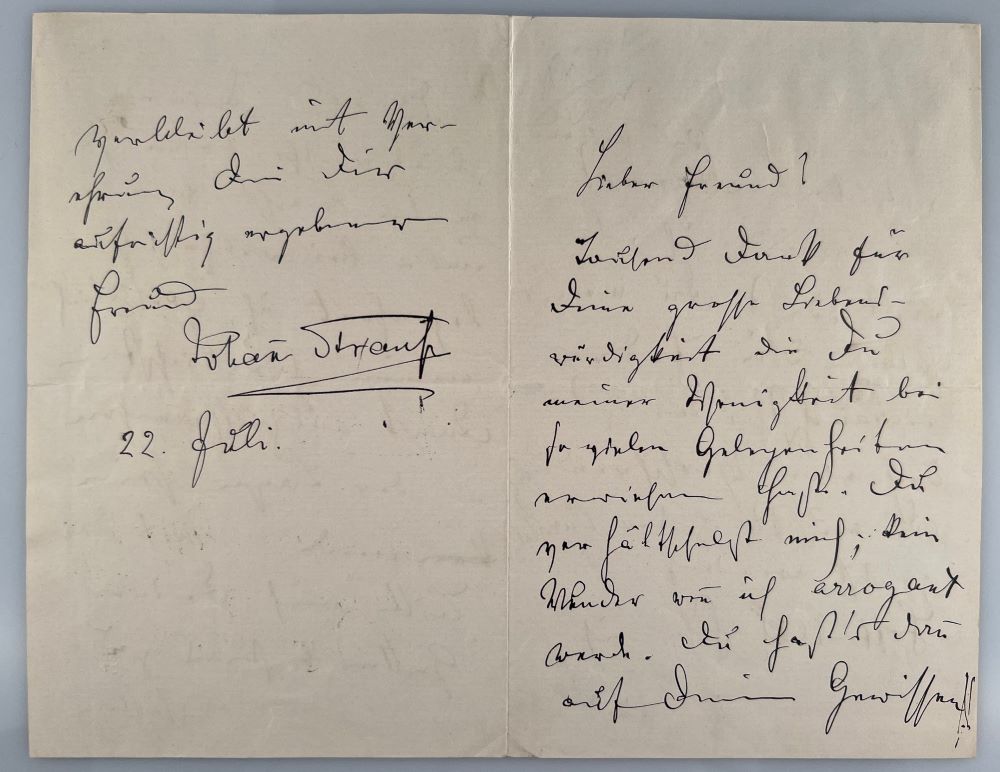 Lieber Freund!
Tausend Dank für
Deine grosse Liebens-
würdigkeit die Du
meiner Wenigkeit bei
so vielen Gelegenheiten
erwiesen hast. Du
verhältschelst mich; kein
Wunder wen̄ ich arrogant
werde. Du hast's dan̄
auf Deinem Gewissen!!
verbleibt mit Ver-
ehrung Dein Dir
aufrichtig ergebener
Freund
Johan̄ Strauss
22. Juli.